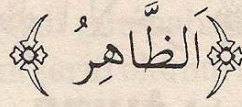 اَلظَّاهِرُ